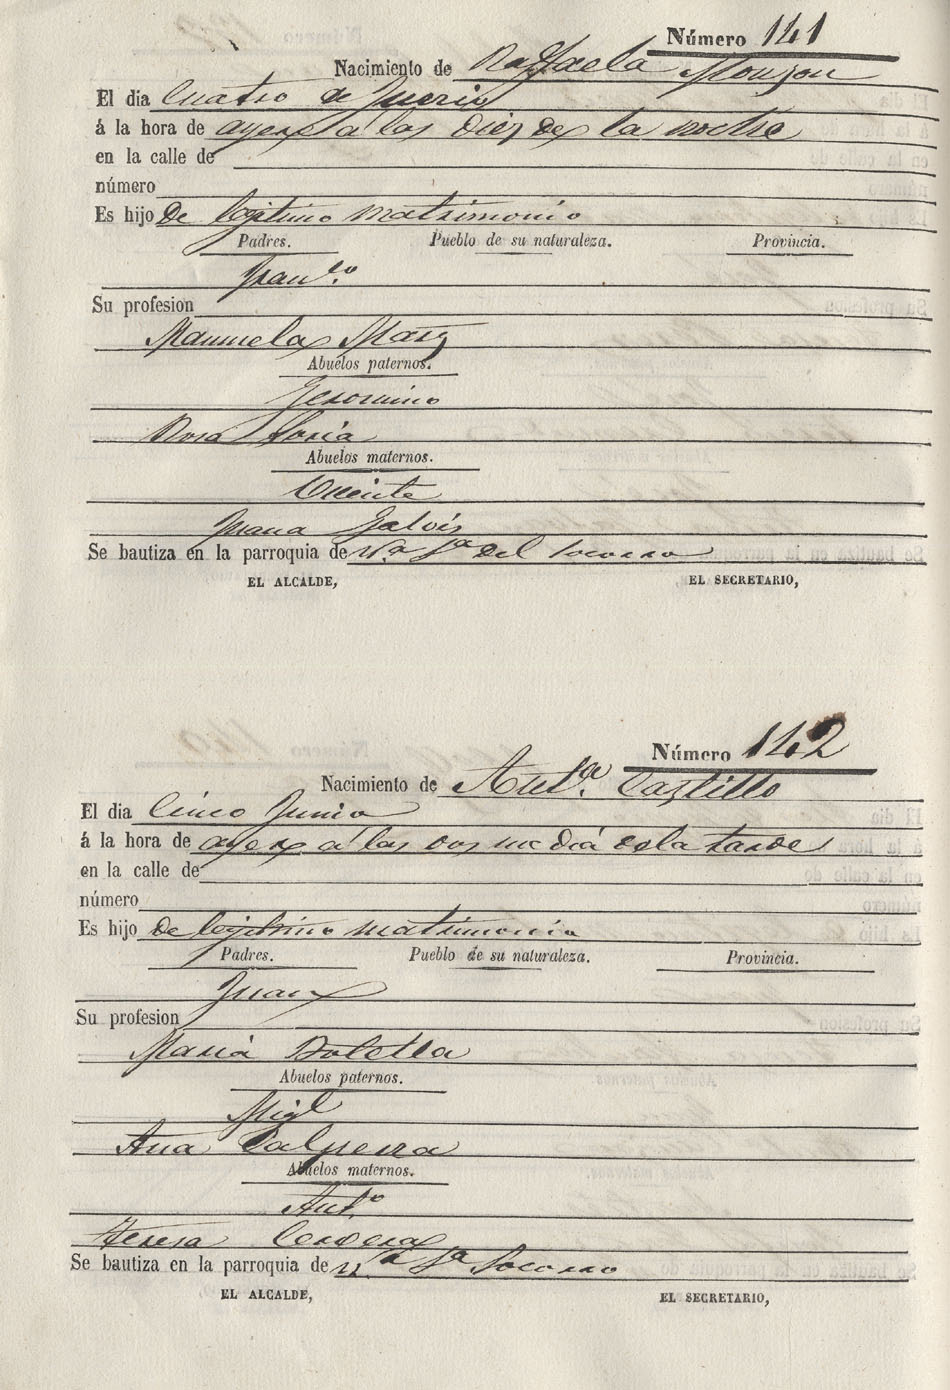 Número 141
Nacimiento de Raffaela Monzon
El dia Cuatro de Junio
á la hora de ayer a las diez de la noche
en la calle de
número
Es hijo de legitimo matrimonio
Padres. Pueblo de su naturaleza. Provincia.
Franco.
Su profesion
Manuela Marz
Abuelos paternos.
Geronimo
Rosa Soria
Abuelos maternos.
Vicente
Juana Galvis
Se bautiza en la parroquia de Na. Sa del Socorro
EL ALCALDE, EL SECRETARIO,
Número 142
Nacimiento de Anta. Castillo
El dia Cinco Junio
á la hora de ayer a las dos media dela tarde
en la calle de
número
Es hijo de legitimo matrimonio
Padres. Pueblo de su naturaleza. Provincia.
Juan
Su profesion
Maria Boletla
Abuelos paternos.
Migl
Ana Calpena
Abuelos maternos.
Anto
Teresa Cervera
Se bautiza en la parroquia de Na Sa Socorro
EL ALCALDE, EL SECRETARIO,